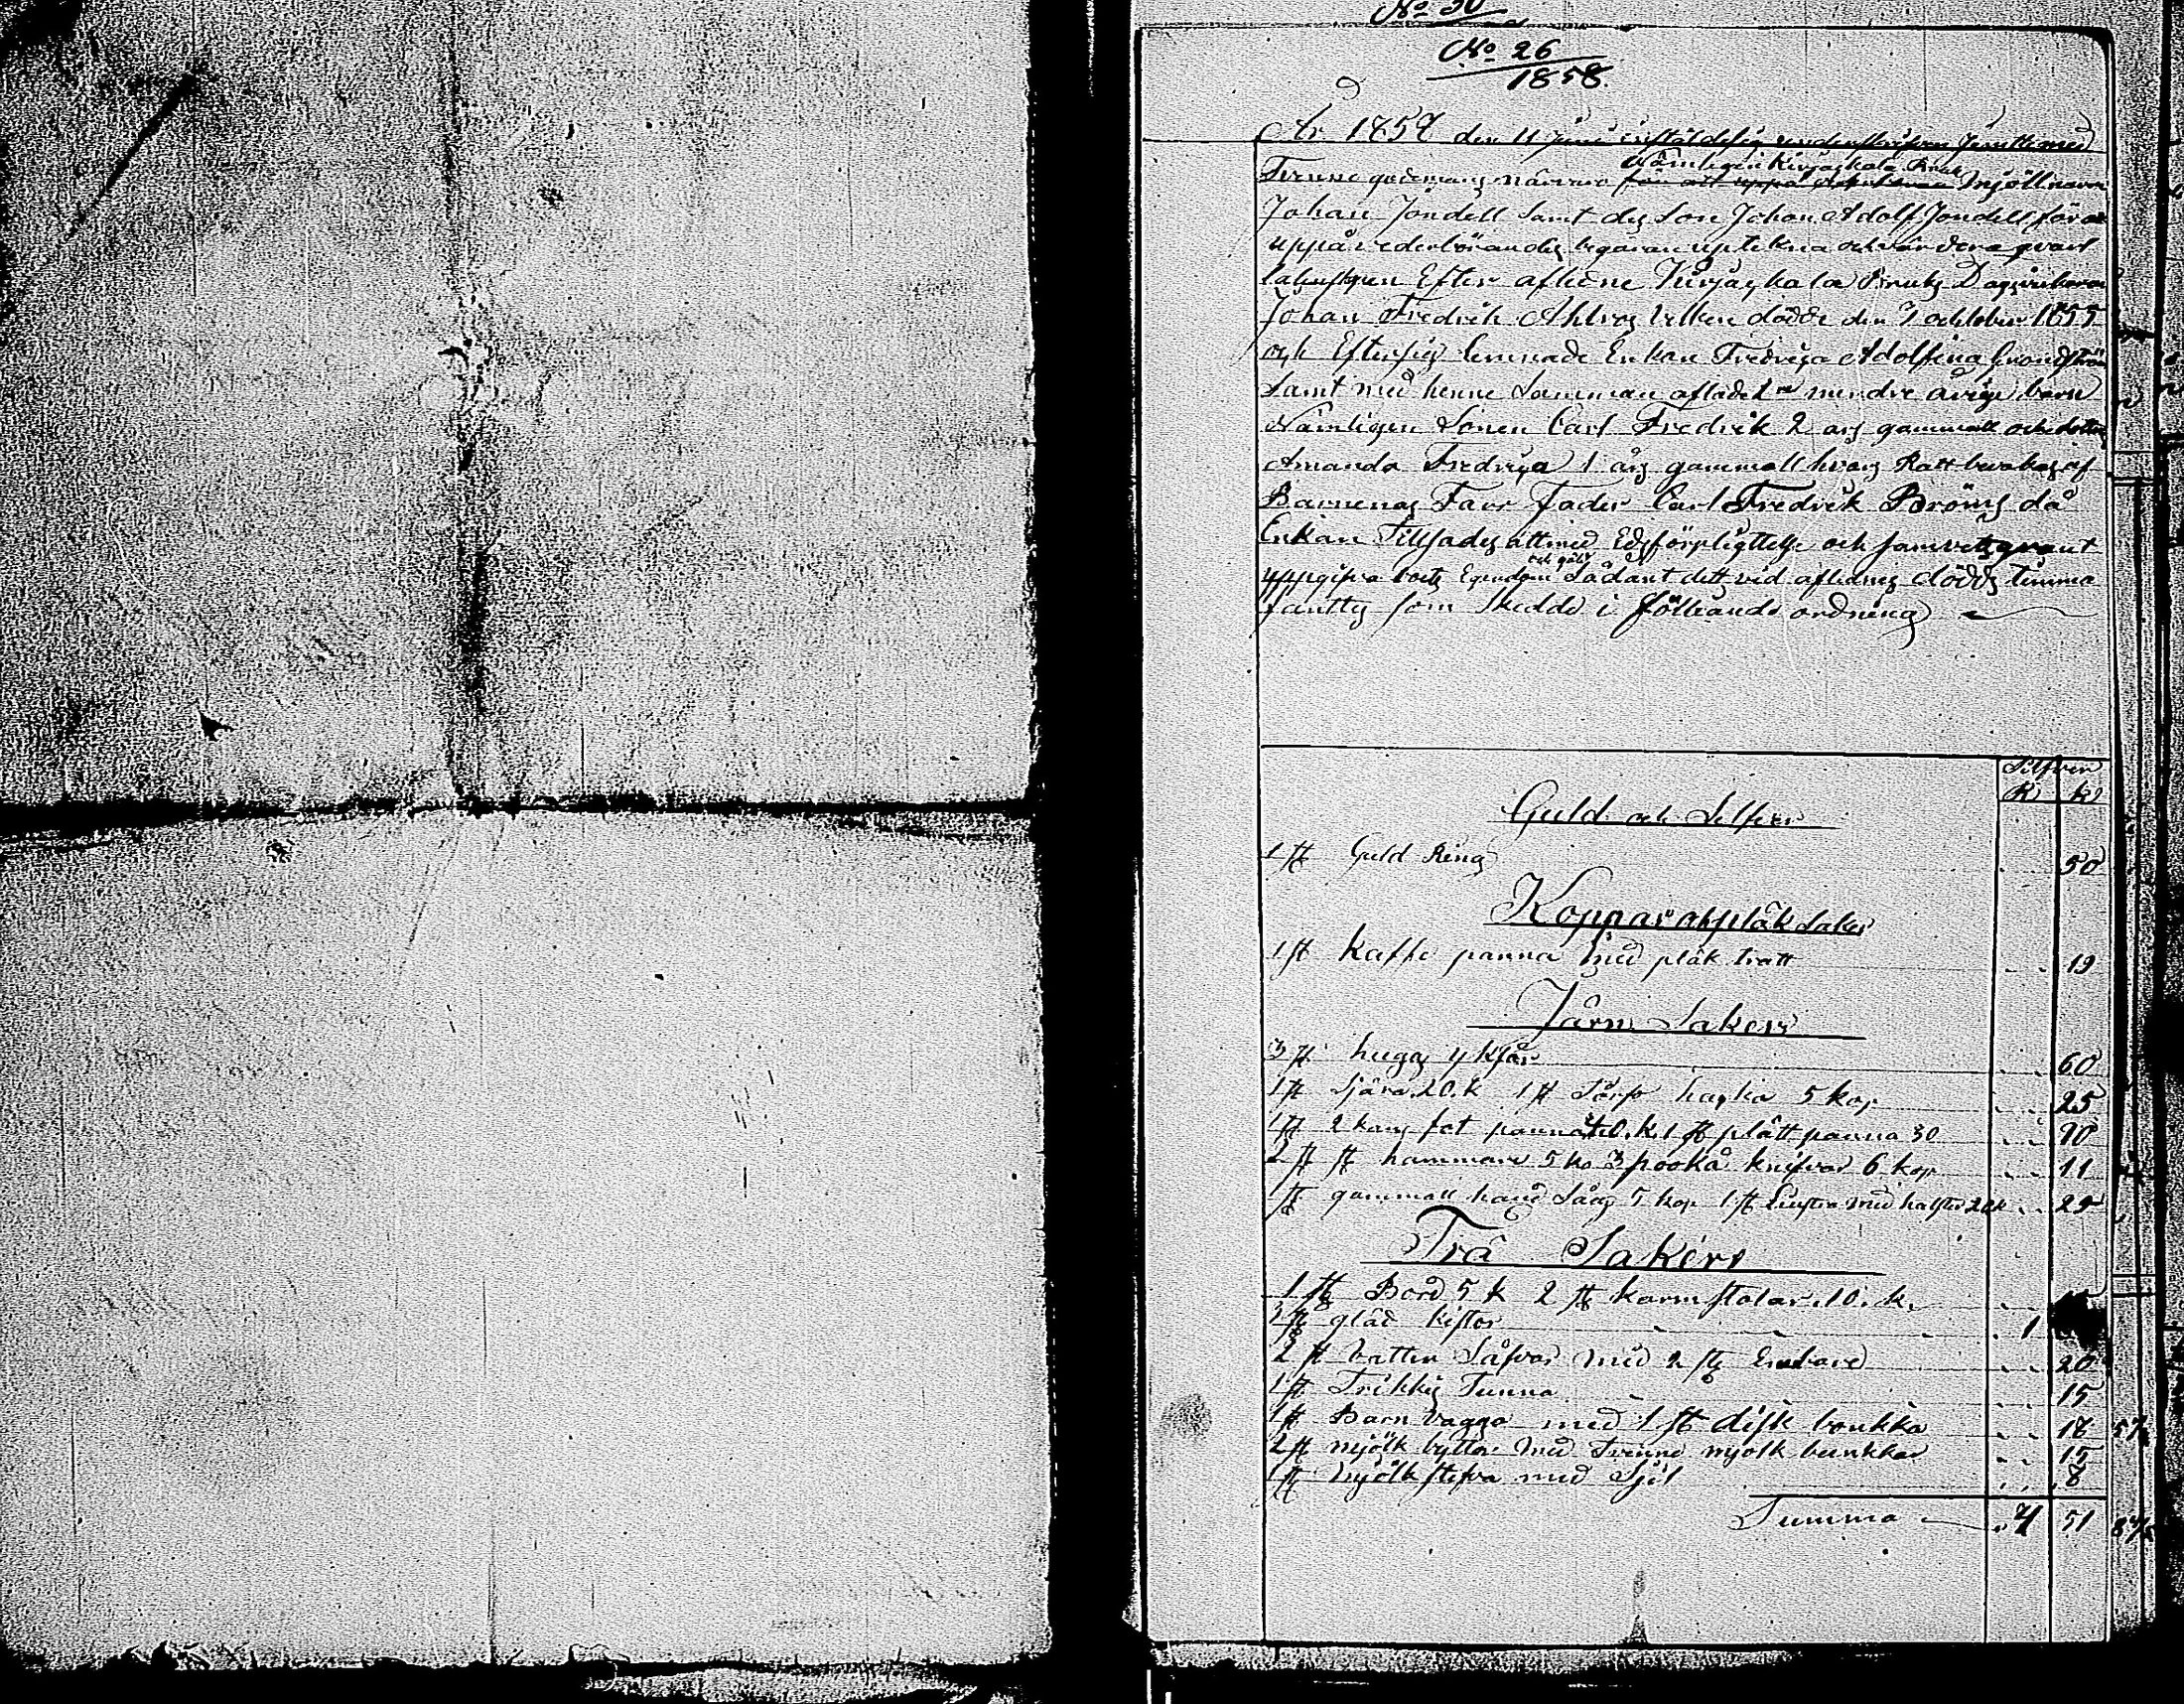 No 30
No 26
1858.
År 1857 den 11 Juni instälde sig undertekna Jemte med
Nämligen Kirjaskala Bruks
Tvenne godemäns närvaro Mjöllnaren
Johan Jondell Samt des Son Johan Adolf Jondell för at
uppå vederbörandes begäran uptekna och värdera qvarl
Efter aflidne Kirjaskala Bruks Dagsverkaren
Johan Fredrik Ahlros vilken dödde den 7 october 1855
och Eftersig lemnade Enkan Fredrica Adolfina Grondströ
Samt med henne Samman aflade 2ne mindre åriga barn
Nämligen Sonen Carl Fredrik 2 års gammalt och dottren
Amanda Fredrica 1 års gammall hvars Rätt bevakas af
Barnenas Farr Fader Carl Fredrik Broms då
Enkan Tillsades att med Edsförpligttelse och samvetsgrant
och gäld
uppgifva boets Egendom Sådant dett vid aflednes dödds timma
fanttes som skedde i följande ordning
Silfver
R k
Guld och Silfver
1 st Guld Ring 50
Koppar och plåk Saker
1 st Kaffe panna med plåk tratt 19
Järn Saker
3 st hugg yksar 60
1 st Sjära 20 k 1 st hacka 5 kop 25
1 st 2 kans fat panna k 1 st plått panna 30 70
2 st st hammare 5 ko 3 pooka knifvar 6 kop 11
1 st gammall hand Såg 5 kop 1 st med halster 20 k 25
Trä Sakers
1 st Bord 5 k 2 st karmstolar 10 k
3 st kistor 1
2 st vatten Såfvar med 2 st Embare 20
1 st Trikkis Tunna 15
1 st Barn vagga med 1 st disk bonkka 18
2 st mjölk byttor med Tvenne mjölk bunkkar 15
1 st mjölk stefva med Sjil 8
Summa 7 51